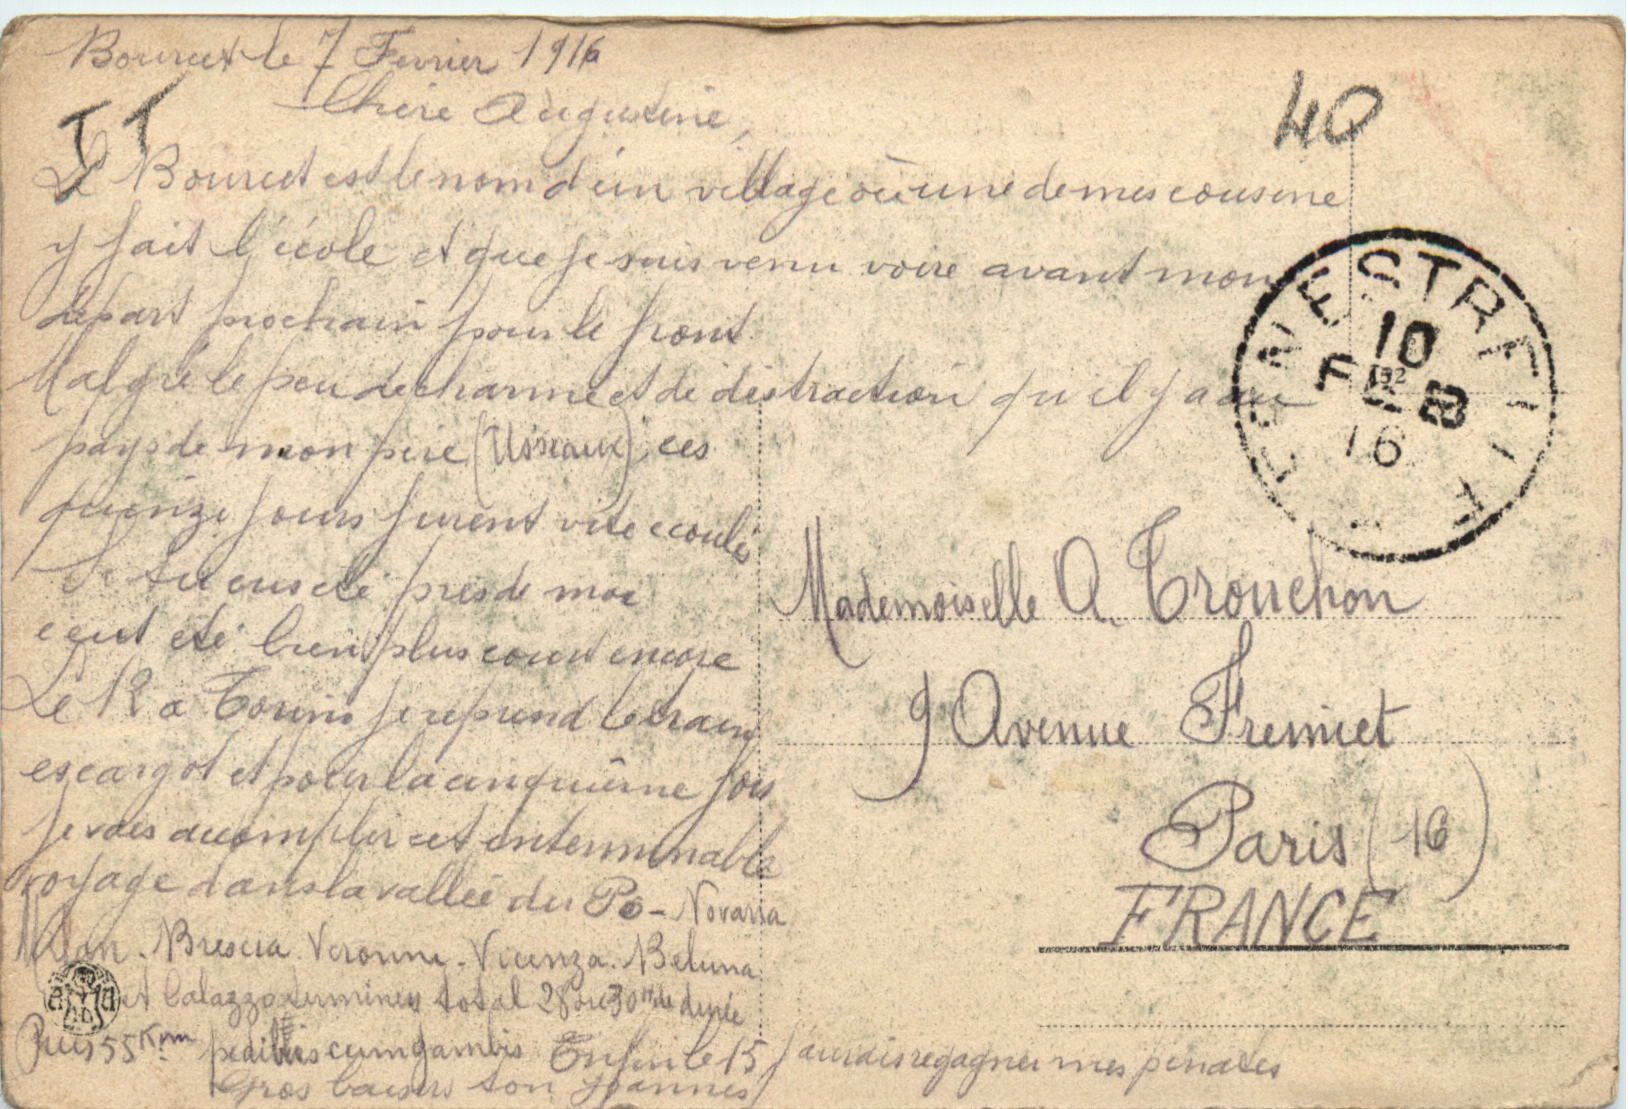 Bourcet le 7 Fevrier 1916
Chère Augustine,
Le Bourcet est le nom d'un village où une de mes cousine
y fait l'école et que je suis venu voire avant mon
départ prochain pour le front
Malgré le peu de charme et de distraction qu'il y a au
pays de mon père (Usseaux), ces
quinze jours furent vite ecoulés
Si tu eus été près de moi
c'eut été bien plus court encore
Le 12 a Torino je reprend le train
escargot et pour la cinquième fois
je vais accomplir cet interminable
voyage dans la vallée du Po - Novarra
Milan - Brescia. Veronne - Vicenza. Beluna
et Calazzo terminus total 28 ou 30 de durée
Puis 55 Km pedibus cum gambis Enfin le 15 j'aurais regagner mes penates
Gros baisers ton Joannes
TT
40
FENESTRELLE
10
FEB
16
Mademoiselle A. Trouchon
9 Avenue Fremiet
Paris (16)
FRANCE